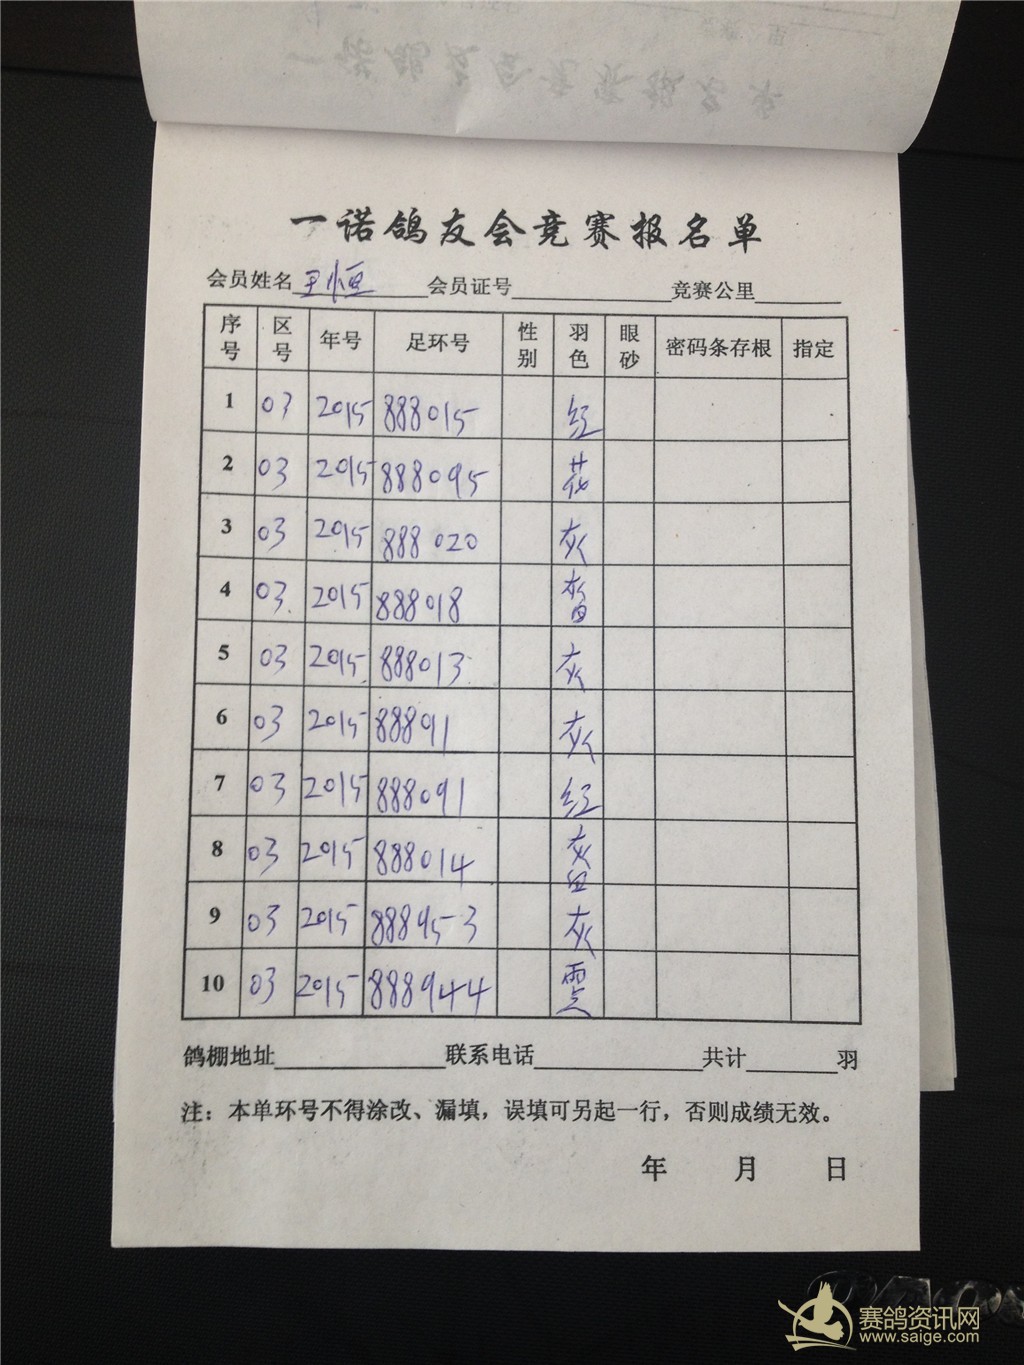 一诺鸽友会竞赛报名单
会员姓名 王恒 会员证号 竞赛公里
序号 区号 年号 足环号 性别 羽色 眼砂 密码条存根 指定
1 03 2015 888015 红
2 03 2015 888095 花
3 03 2015 888020 灰
4 03 2015 888018
5 03 2015 888013 灰
6 03 2015 88891 灰
7 03 2015 888091 红
8 03 2015 888014 灰白
9 03 2015 888953 灰
10 03 2015 888944
鸽棚地址 联系电话 共计 羽
注：本单环号不得涂改、漏填，误填可另起一行，否则成绩无效。
年 月 日
赛鸽资讯网
www.saige.com